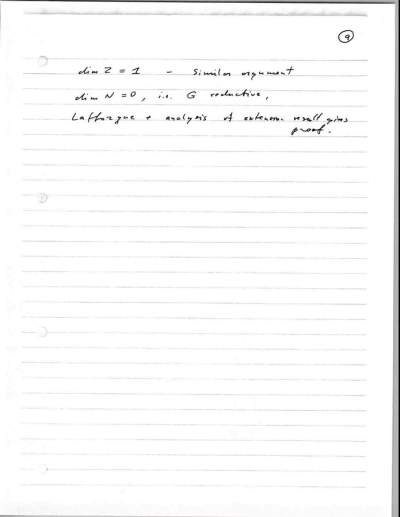 9
dim Z = 1 - Similar argument
dim N = 0, i.e. G reductive,
Lafforgue + analysis of extension result gives
proof.